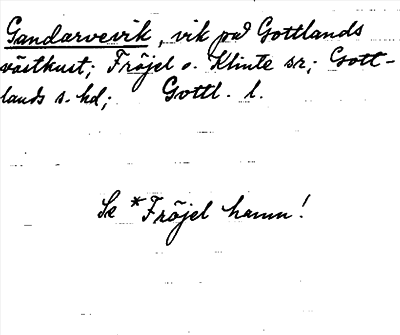 Gandarvevik, vik på Gottlands
västkust; Fröjel o. Klinte sr; Gott-
lands s. hd; Gottl. l.
Se *Fröjel hamn!